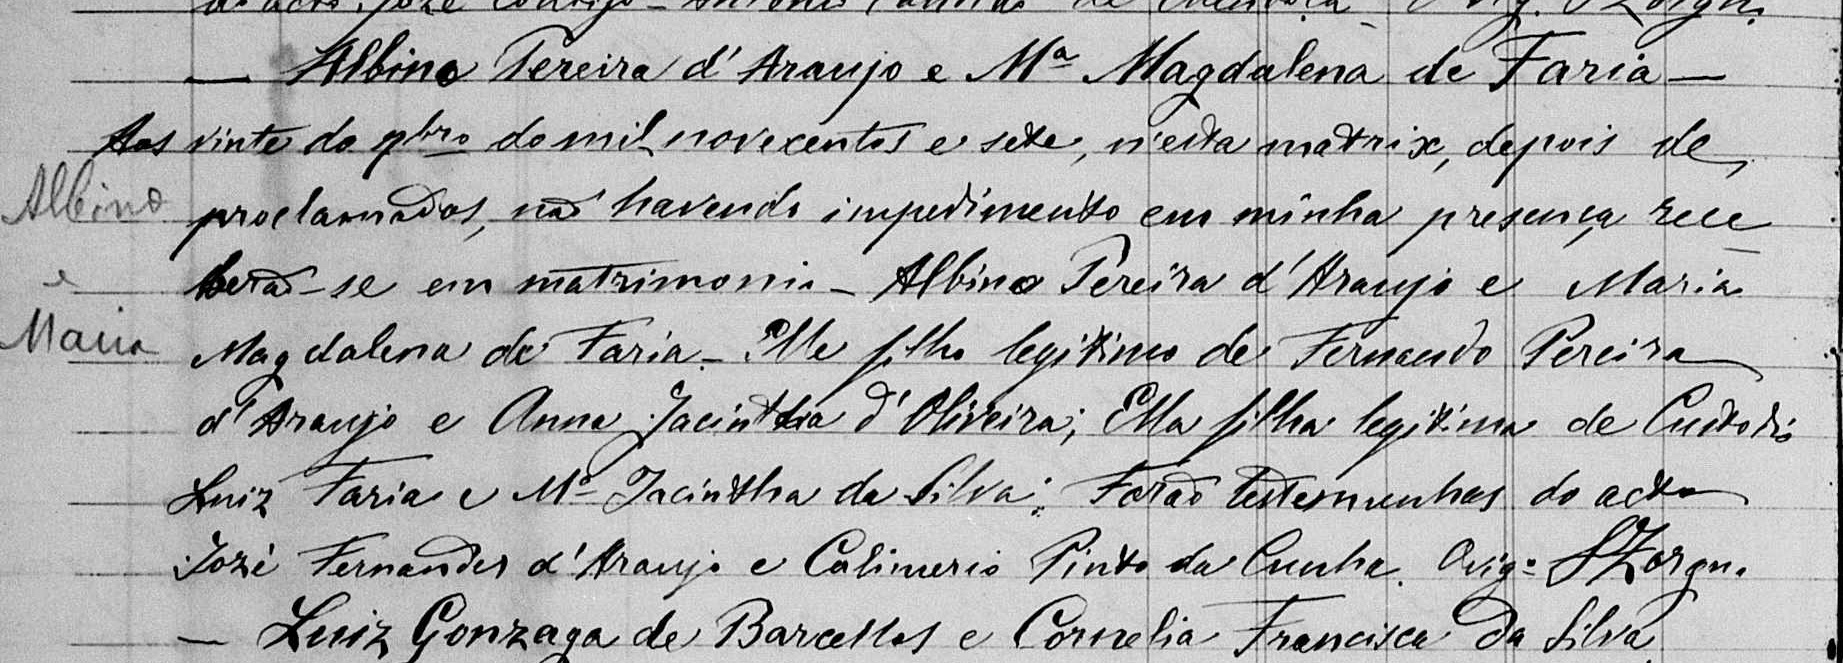 — Albino Pereira d'Araujo e Mª Magdalena de Faria —
Aos vinte do 9bro do mil novecentos e sete, n'esta matrix, depois de
Albino
proclamados, naõ havendo impedimento em minha presença rece
e
beraõ-se em matrimonio - Albino Pereira d'Araujo e Maria
Maria
Magdalena de Faria - Elle filho legitimo de Fernando Pereira
d'Araujo e Anna Jacintha d'Oliveira; Ella filha legitima de Custodio
Luiz Faria e Mª Jacintha da Silva; Foraõ testemunhas do acto
José Fernandes d'Araujo e Calimerio Pinto da Cunha. Vigº
— Luiz Gonzaga de Barcellos e Cornelia Francisca da Silva